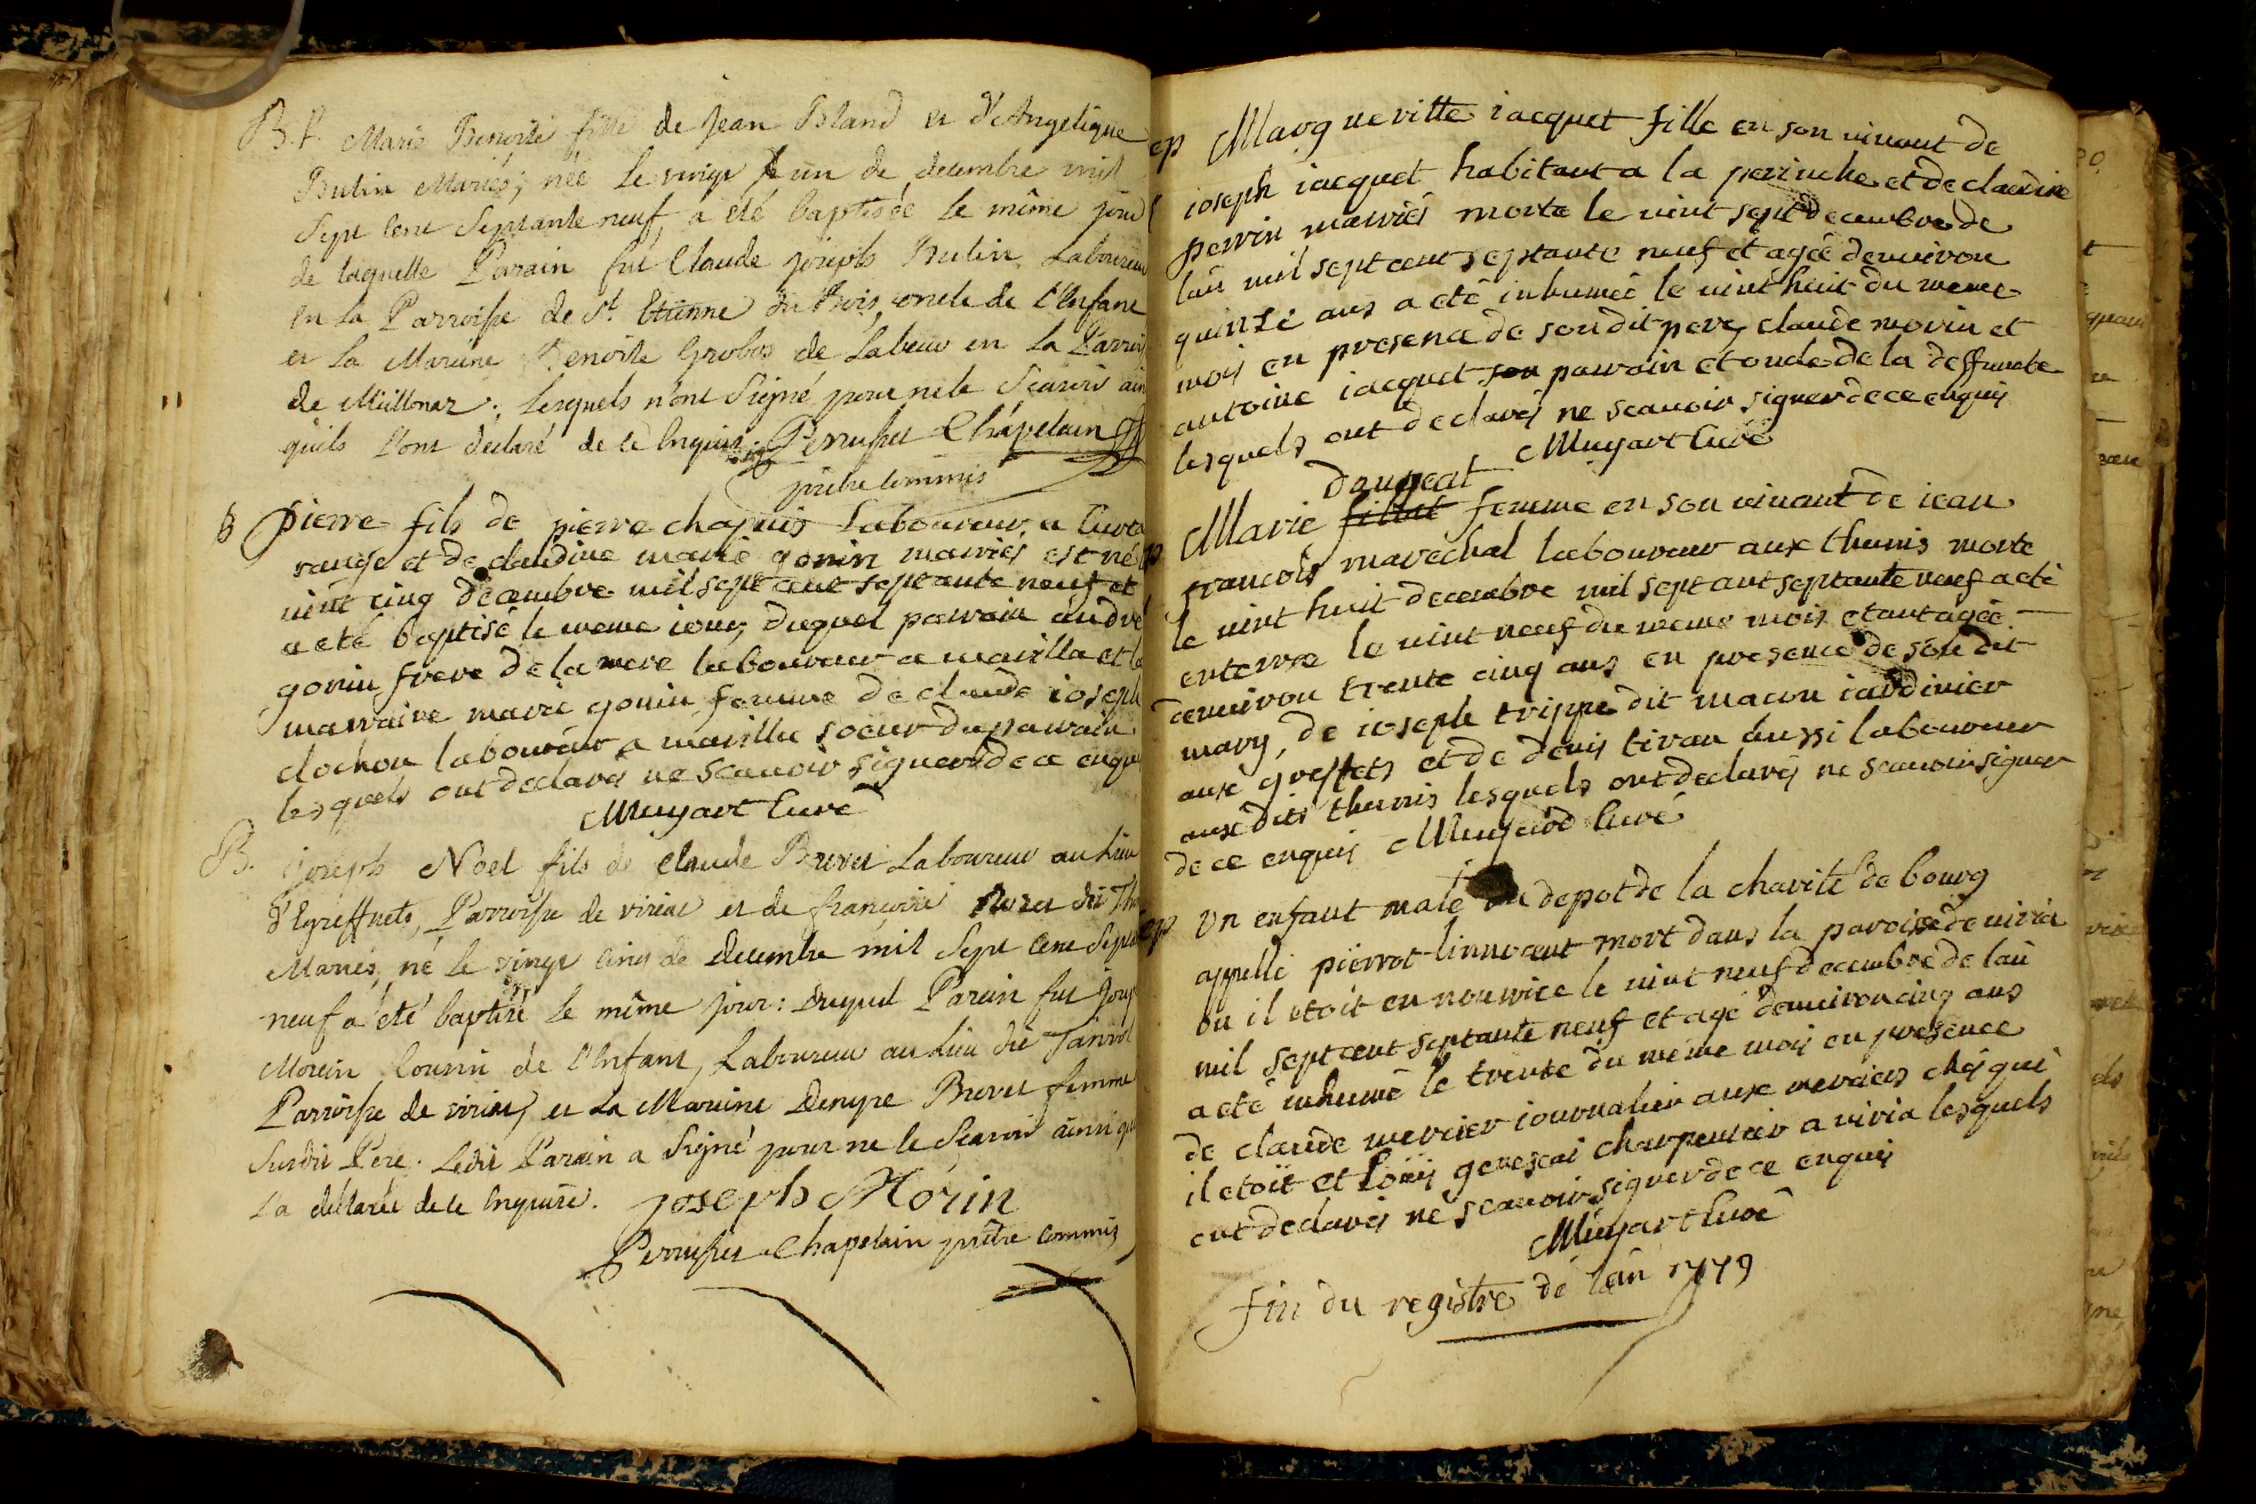 B. P. Marie Benoite fille de Jean Bland et d'Angelique
Butin Mariés; née le vingt & un de decembre mil
Sept Cent Septante neuf, a été baptisée le même jour
de laquelle Parain fut Claude joseph Butin Laboureur
en la Parroisse de St. Etienne du Bois, oncle de l'Enfant
et la Maraine Benoite Grobos de Labeuv en la Parroi
de Meillonaz; Lesquels n'ont Signé pour ne le Scavoir ain
qu'ils l'ont declaré de ce Enquis. Perrusset Chapelain
prêtre Commis
B pierre fils de pierre chapuis Laboureur a
et de claudine marie gonin mariés est né le
vint cinq decembre mil sept cent septante neuf et
a eté baptisé le meme iour, duquel parrain andré
gonin frere de la mere laboureur a mairilla et la
marraine marie gonin femme de claude ioseph
clochon laboureur a mairilla soeur du parrain
lesquels ont declarés ne scauoir signer de ce enquis
Muyart Curé
B. joseph Noel fils de Claude Brevet Laboureur au Lieu
d'Egreffnets, Parroisse de viriat et de françoise Moret dit Th
Mariés, né le vingt Cinq de decembre mil Sept Cent Septa
neuf a été baptisé le même jour: Duquel Parain fut Josep
Morin Cousin de l'Enfant, Laboureur au Lieu dit Tanvol
Parroisse de viriat, et la Maraine Denyse Brevet femme
Susdit Pere. Ledit Parain a Signé pour ne le Scavoir ainsi qu
La déclarée de ce Enquise. joseph Morin
Perrusset Chapelain prêtre Commis
ep Margueritte iacquet fille en son uiuant de
ioseph iacquet habitant a la perruche et de claudine
perrin mariés morte le uint sept decembre de
lân mil sept cent septante neuf et agée denuiron
quinze ans a eté inhumée le uint huit du meme
mois en presence de sondit pere, claude morin et
antoine iacquet son parrain et oncle de la deffuncte
lesquels ont declarés ne scauoir signer de ce enquis
Muyart Curé
daugeat
ep Marie fillet femme en son uiuant de iean
francois marechal laboureur aux themis morte
le uint huit decembre mil sept cent septante neuf a eté
enterrée le uint neuf du meme mois etant agée
denuiron trente cinq ans en presence de son dit
mary, de ioseph trippe dit macon iardinier
aux greffets et de denis tivan aussi laboureur
auxdits themis lesquels ont declarés ne scauoir signer
de ce enquis Muyard Curé
ep Un enfant male du depot de la charité de bourg
appellé pierrot linnocent mort dans la paroisse de uiria
ou il etoit en nourrice le uint neuf decembre de lân
mil sept cent septante neuf et agé denuiron cinq ans
a eté inhumé le trente du même mois en presence
de claude mercier iournalier aux merciers chés qui
il etoit et Loüis genessai charpentier a viria lesquels
ont declarés ne scauoir signer de ce enquis
Muyart Curé
fin du registre de lân 1779